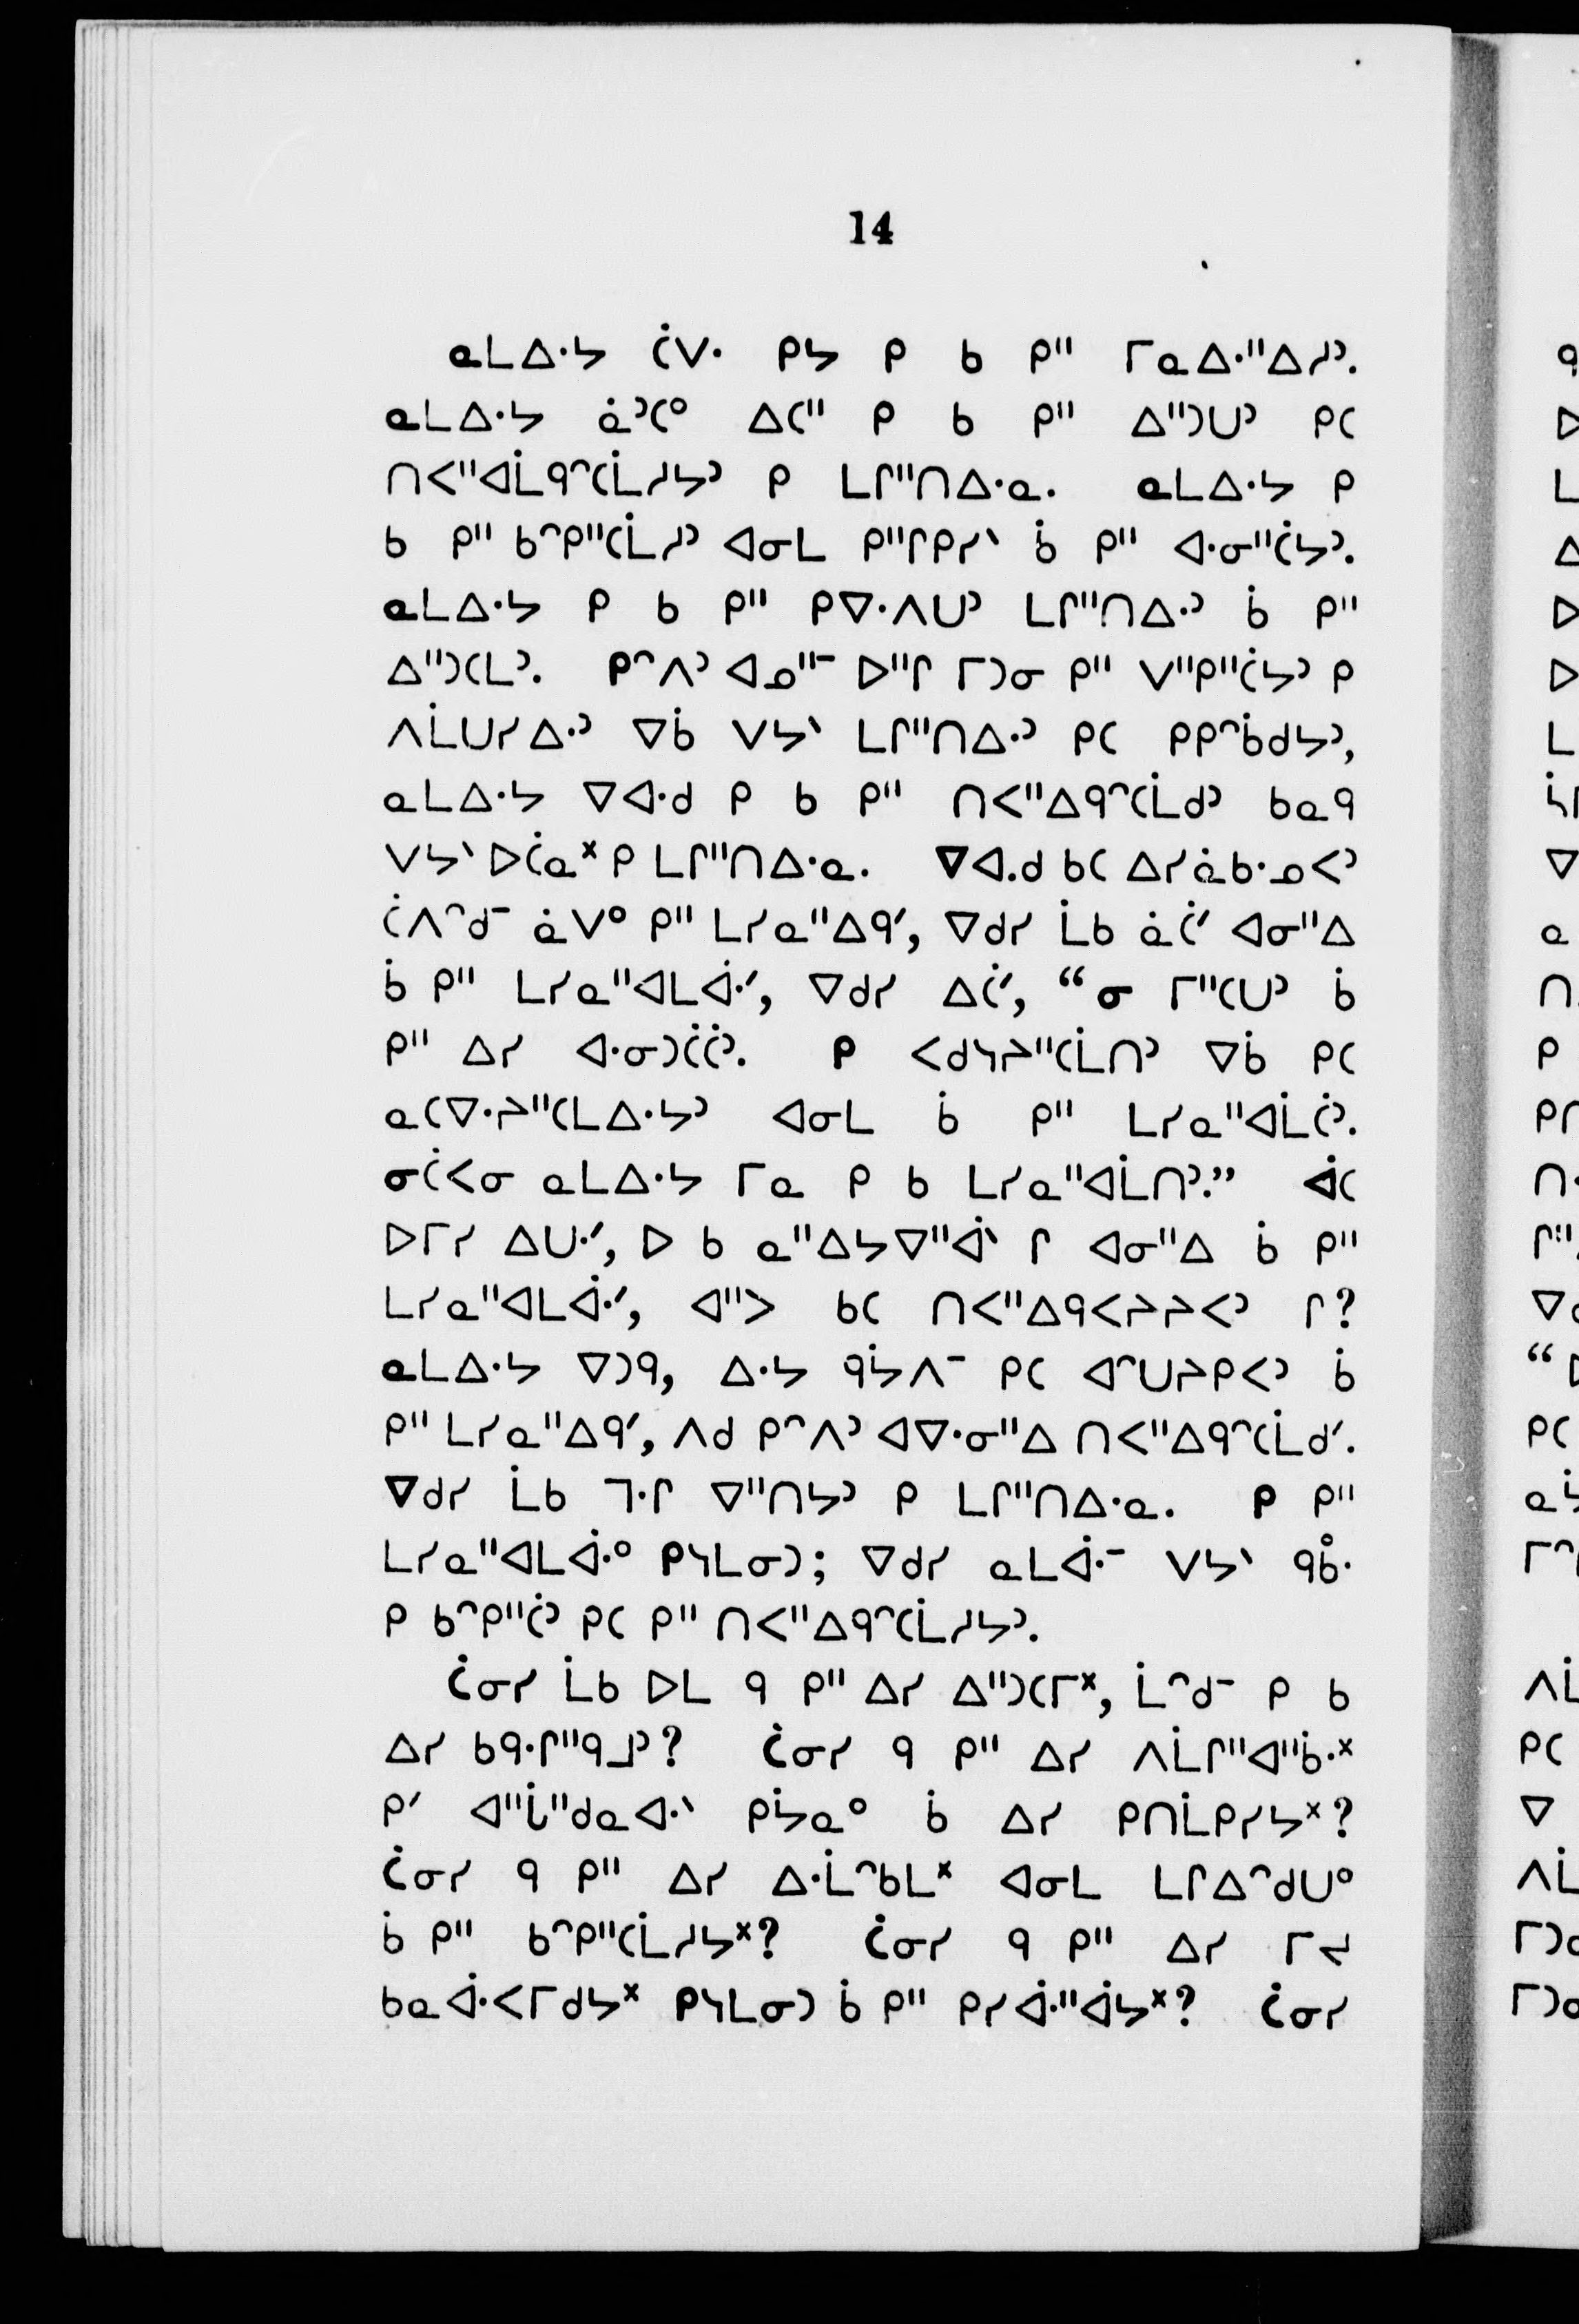 14
ᓇᒪᐏᔭ ᑖᐻ ᑭᔭ ᑭ ᑲ ᑭᐦ ᒥᓇᐏᐦᐃᓱᐣ.
ᓇᒪᐏᔭ ᓈᐣᑕᐤ ᐃᑕᐦ ᑭ ᑲ ᑭᐦ ᐃᐦᑐᑌᐣ ᑭᑕ
ᑎᐸᐦᐊᒫᑫᐢᑕᒫᓱᔭᐣ ᑭ ᒪᒋᐦᑎᐏᓇ. ᓇᒪᐏᔭ ᑭ
ᑲ ᑭᐦ ᑲᐢᑭᐦᑕᒫᓱᐣ ᐊᓂᒪ ᑭᐦᒋᑭᓯᐠ ᑳ ᑭᐦ ᐘᓂᐦᑖᔭᐣ.
ᓇᒪᐏᔭ ᑭ ᑲ ᑭᐦ ᑭᐍᐱᑌᐣ ᒪᒋᐦᑎᐏᐣ ᑳ ᑭᐦ
ᐃᐦᑐᑕᒪᐣ. ᑭᐢᐱᐣ ᐊᓄᐦᐨ ᐅᐦᒋ ᒥᑐᓂ ᑭᐦ ᐯᐦᑭᐦᑖᔭᐣ ᑭ
ᐱᒫᑌᓯᐏᐣ ᐁᑳ ᐯᔭᐠ ᒪᒋᐦᑎᐏᐣ ᑭᑕ ᑭᑭᐢᑳᑯᔭᐣ,
ᓇᒪᐏᔭ ᐁᐘᑯ ᑭ ᑲ ᑭᐦ ᑎᐸᐦᐃᑫᐢᑕᒫᑯᐣ ᑲᓇᑫ
ᐯᔭᐠ ᐅᑖᓇᕽ ᑭ ᒪᒋᐦᑎᐏᓇ. ᐁᐘᑯ ᑲᑕ ᐃᓯᓈᑿᓄᐸᐣ
ᑖᐱᐢᑯᐨ ᓈᐯᐤ ᑭᐦ ᒪᓯᓇᐦᐃᑫᐟ, ᐁᑯᓯ ᒫᑲ ᓈᑖᐟ ᐊᓂᐦᐃ
ᑳ ᑭᐦ ᒪᓯᓇᐦᐊᒪᐚᐟ, ᐁᑯᓯ ᐃᑖᐟ, “ᓂ ᒥᐦᑕᑌᐣ ᑳ
ᑭᐦ ᐃᓯ ᐘᓂᑐᑖᑖᐣ. ᑭ ᐸᑯᓭᔨᐦᑕᒫᑎᐣ ᐁᑳ ᑭᑕ
ᓇᑕᐍᔨᐦᑕᒪᐏᔭᐣ ᐊᓂᒪ ᑳ ᑭᐦ ᒪᓯᓇᐦᐊᒫᑖᐣ.
ᓂᑖᐸᓂ ᓇᒪᐏᔭ ᒥᓇ ᑭ ᑲ ᒪᓯᓇᐦᐊᒫᑎᐣ.” ᐋᑕ
ᐅᒥᓯ ᐃᑗᐟ, ᐅ ᑲ ᓇᐦᐃᔭᐍᐦᐋᐠ ᒋ ᐊᓂᐦᐃ ᑳ ᑭᐦ
ᒪᓯᓇᐦᐊᒪᐚᐟ, ᐊᐦᐳ ᑲᑕ ᑎᐸᐦᐃᑫᐸᔨᔨᐸᐣ ᒋ?
ᓇᒪᐏᔭ ᐁᑐᑫ, ᐏᔭ ᑫᔮᐱᐨ ᑭᑕ ᐊᐢᑌᔨᑭᐸᐣ ᑳ
ᑭᐦ ᒪᓯᓇᐦᐃᑫᐟ, ᐱᑯ ᑭᐢᐱᐣ ᐊᐍᓂᐦᐃ ᑎᐸᐦᐃᑫᐢᑕᒫᑯᐟ.
ᐁᑯᓯ ᒫᑲ ᒣᐧᒋ ᐁᐦᑎᔭᐣ ᑭ ᒪᒋᐦᑎᐏᓇ. ᑭ ᑭᐦ
ᒪᓯᓇᐦᐊᒪᐚᐤ ᑭᓭᒪᓂᑐ; ᐁᑯᓯ ᓇᒪᐚᐨ ᐯᔭᐠ ᑫᑳᐧᐤ
ᑭ ᑲᐢᑭᐦᑖᐣ ᑭᑕ ᑭᐦ ᑎᐸᐦᐃᑫᐢᑕᒫᓱᔭᐣ.
ᑖᓂᓯ ᒫᑲ ᐅᒪ ᑫ ᑭᐦ ᐃᓯ ᐃᐦᑐᑕᒥᕽ, ᒫᐢᑯᐨ ᑭ ᑲ
ᐃᓯ ᑲᑫᐧᒋᐦᑫᒧᐣ? ᑖᓂᓯ ᑫ ᑭᐦ ᐃᓯ ᐱᒫᒋᐦᐊᐦᑳᐧᕽ
ᑭᐟ ᐊᐦᒑᐦᑯᓇᐘᐠ ᑭᔮᓇᐤ ᑳ ᐃᓯ ᑭᑎᒫᑭᓯᔭᕽ?
ᑖᓂᓯ ᑫ ᑭᐦ ᐃᓯ ᐏᒫᐢᑲᒪᕽ ᐊᓂᒪ ᒪᒋᐃᐢᑯᑌᐤ
ᑳ ᑭᐦ ᑲᐢᑭᐦᑕᒫᓱᔭᕽ? ᑖᓂᓯ ᑫ ᑭᐦ ᐃᓯ ᒥᔪ
ᑲᓇᐚᐸᒥᑯᔭᕽ ᑭᓭᒪᓂᑐ ᑳ ᑭᐦ ᑭᓯᐚᐦᐋᔭᕽ? ᑖᓂᓯ